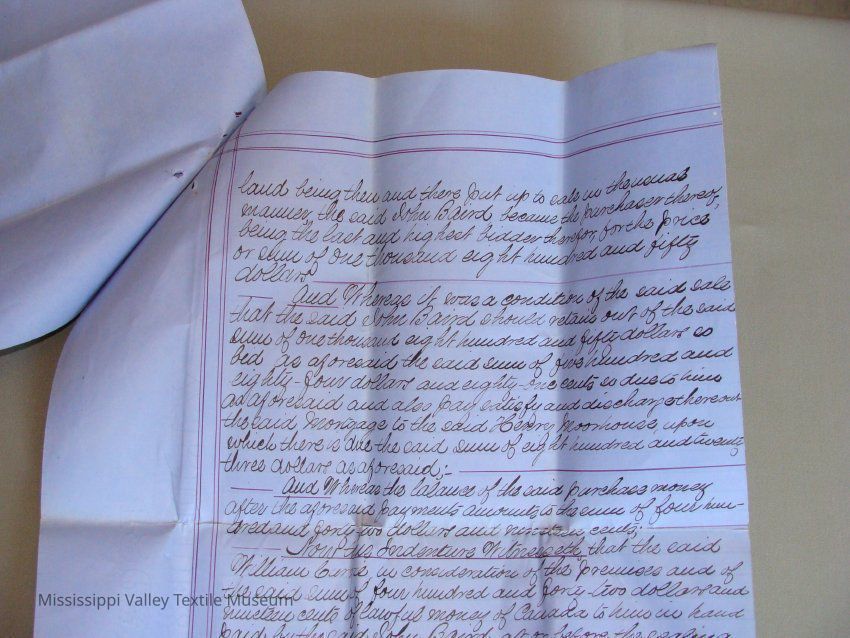 land being then and there put up to sale in the usual
manner, the said John Baird became the purchaser thereof,
being the last and highest bidder therefor, for the price
or sum of One thousand eight hundred and fifty
dollars
And Whereas it was a condition of the said sale
that the said John Baird should retain out of the said
sum of one thousand eight hundred and fifty dollars so
bid as aforesaid the said sum of five hundred and
eighty-four dollars and eighty-one cents so due to him
as aforesaid and also pay satisfy and discharge thereout
the said Mortgage to the said Henry Moorhouse, upon
which there is due the said sum of eight hundred and twenty
three dollars as aforesaid;-
And Whereas the balance of the said purchase money
after the aforesaid payments amounts to the sum of four hun-
dred and forty two dollars and nineteen cents;
Now this Indenture Witnesseth, that the said
William in consideration of the premises and of
the said sum of four hundred and forty-two dollars and
nineteen cents of lawful money of Canada to him in hand
paid by the said John Baird, at or before the
Mississippi Valley Textile Museum